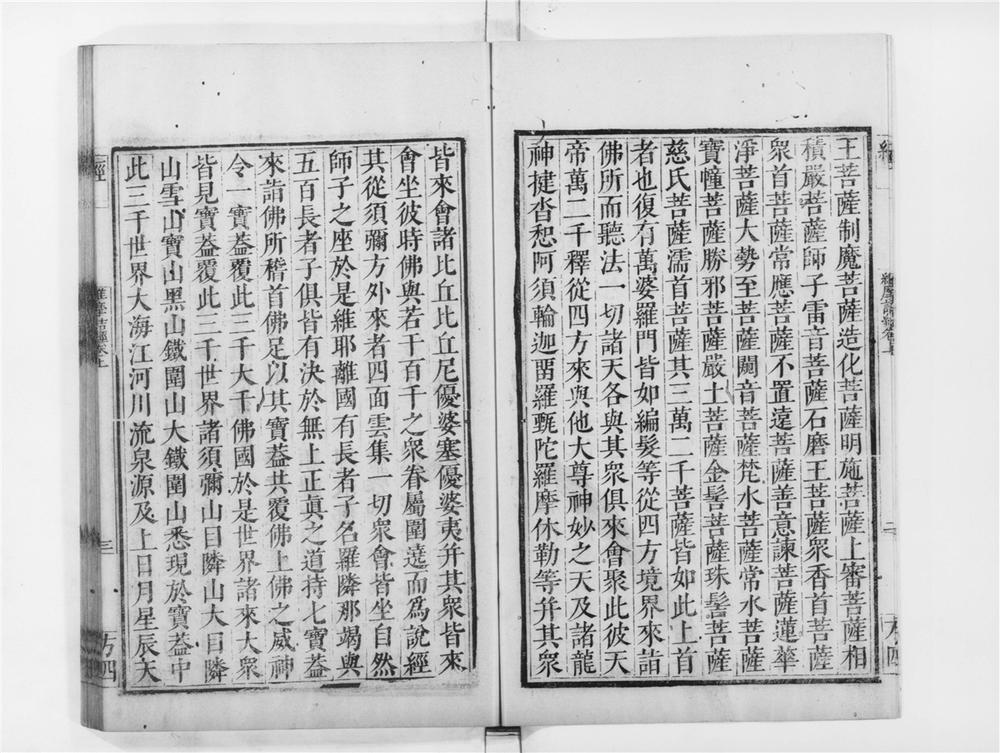 王菩薩制魔菩薩造化菩薩明施菩薩上審菩薩相
積嚴菩薩師子雷音菩薩石磨王菩薩衆香首菩薩
衆首菩薩常應菩薩不置遠菩薩善意諫菩薩蓮華
淨菩薩大勢至菩薩闚音菩薩梵水菩薩常水菩薩
寶幢菩薩勝邪菩薩嚴土菩薩金髻菩薩珠髻菩薩
慈氏菩薩濡首菩薩其三萬二千菩薩皆如此上首
者也復有萬婆羅門皆如編髮等從四方境界來詣
佛所而聽法一切諸天各與其衆俱來會聚此彼天
帝萬二千釋從四方來與他大尊神妙之天及諸龍
神揵沓惒阿須輪迦畱羅甄陀羅摩休勒等幷其衆
皆來會諸比丘比丘尼優婆塞優婆夷幷其衆皆來
會坐彼時佛與若干百千之衆眷屬圍遶而爲說經
其從須彌方外來者四面雲集一切衆會皆坐自然
師子之座於是維耶離國有長者子名羅隣那竭與
五百長者子俱皆有決於無上正眞之道持七寶葢
來詣佛所稽首佛足以其寶葢共覆佛上佛之威神
令一寶葢覆此三千大千佛國於是世界諸來大衆
皆見寶葢覆此三千世界諸須彌山目隣山大目隣
山雪山寶山黑山鐵圍山大鐵圍山悉現於寶葢中
此三千世界大海江河川流泉源及上日月星辰天
三